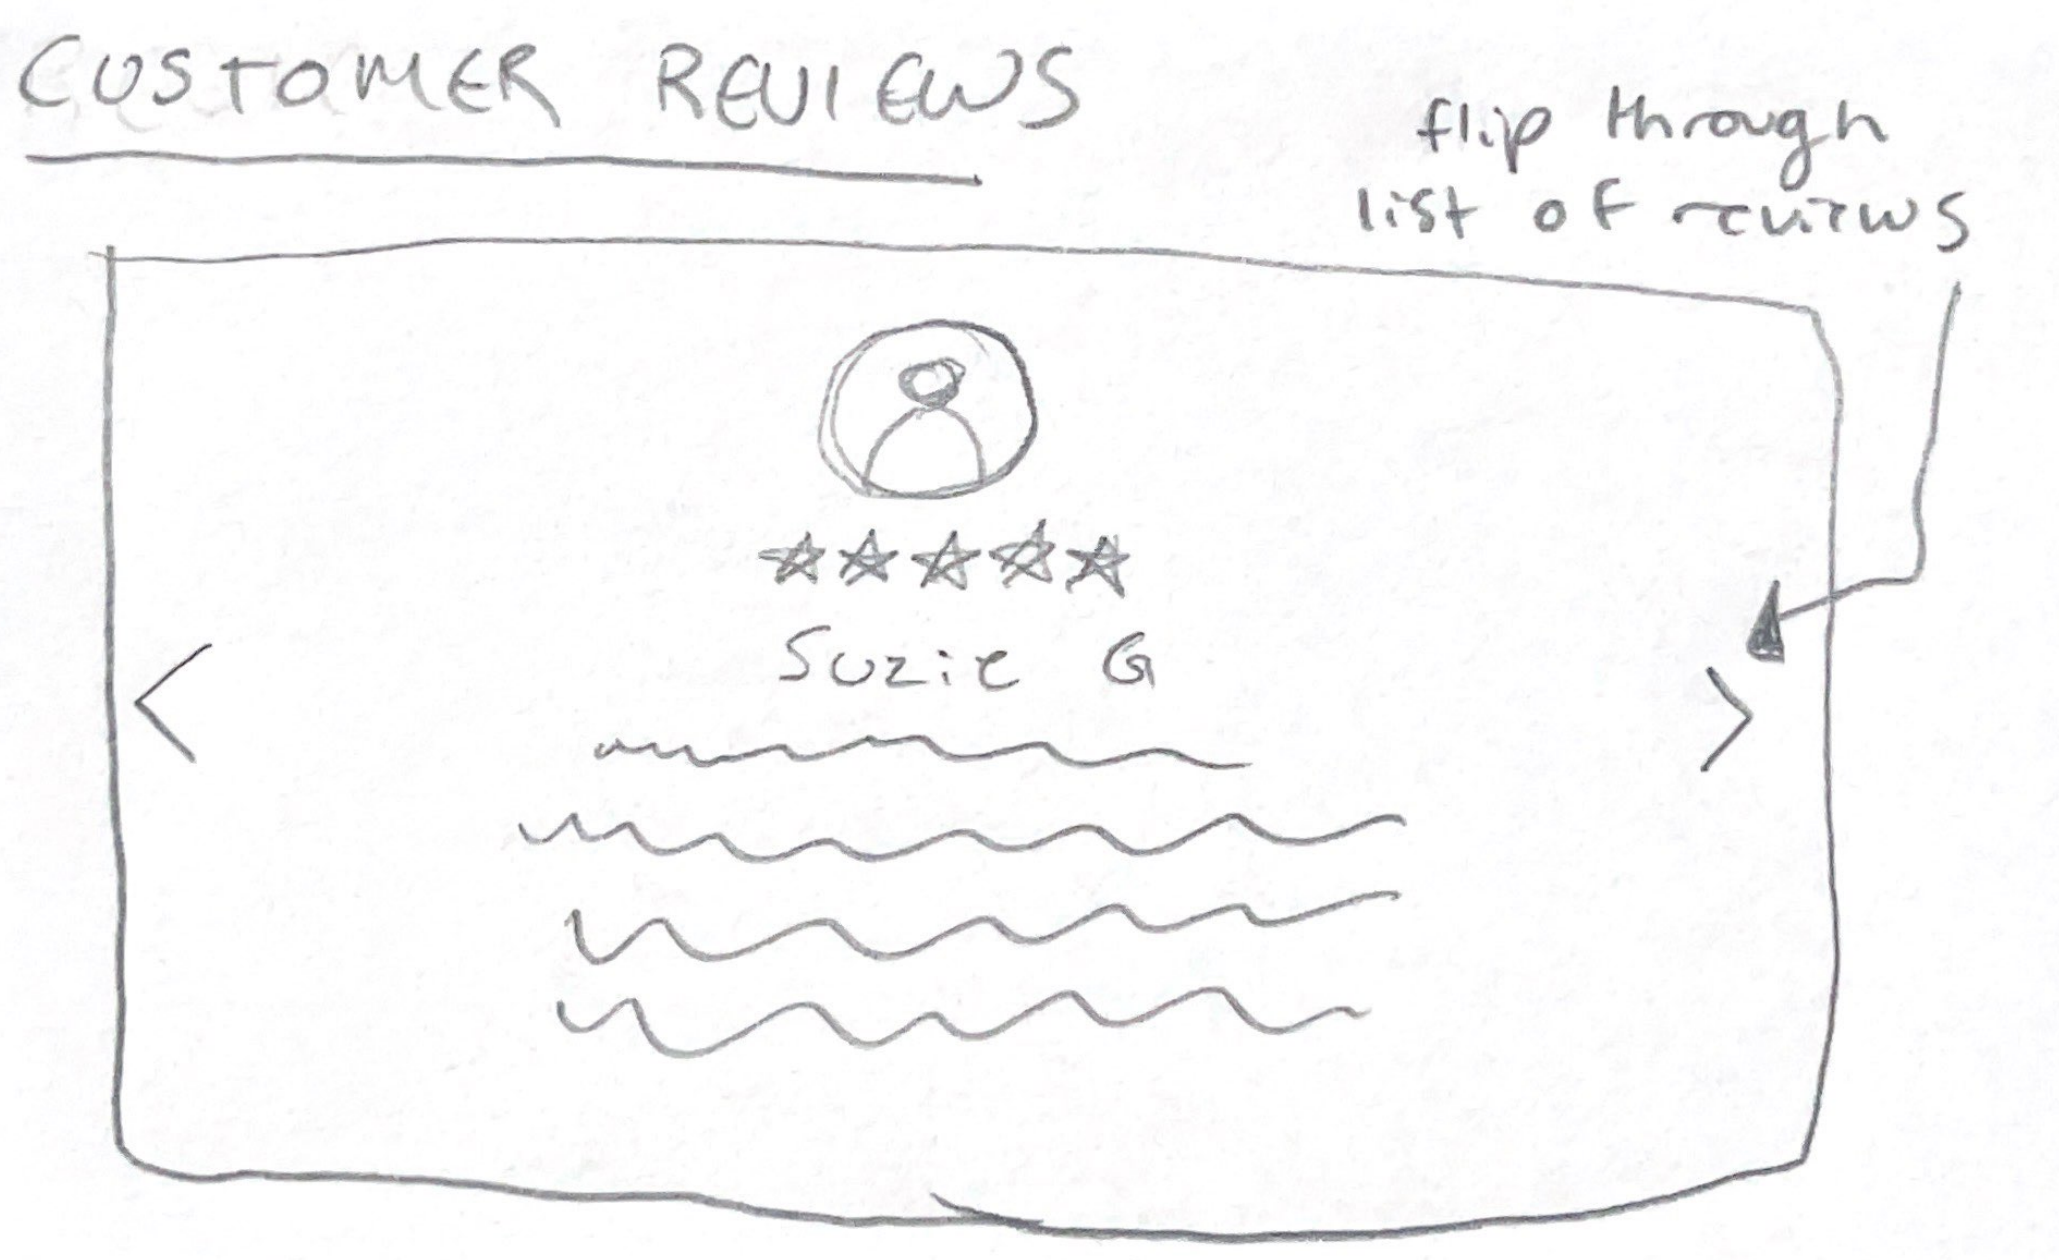 CUSTOMER REVIEWS
flip through
list of reviews
Suzie G